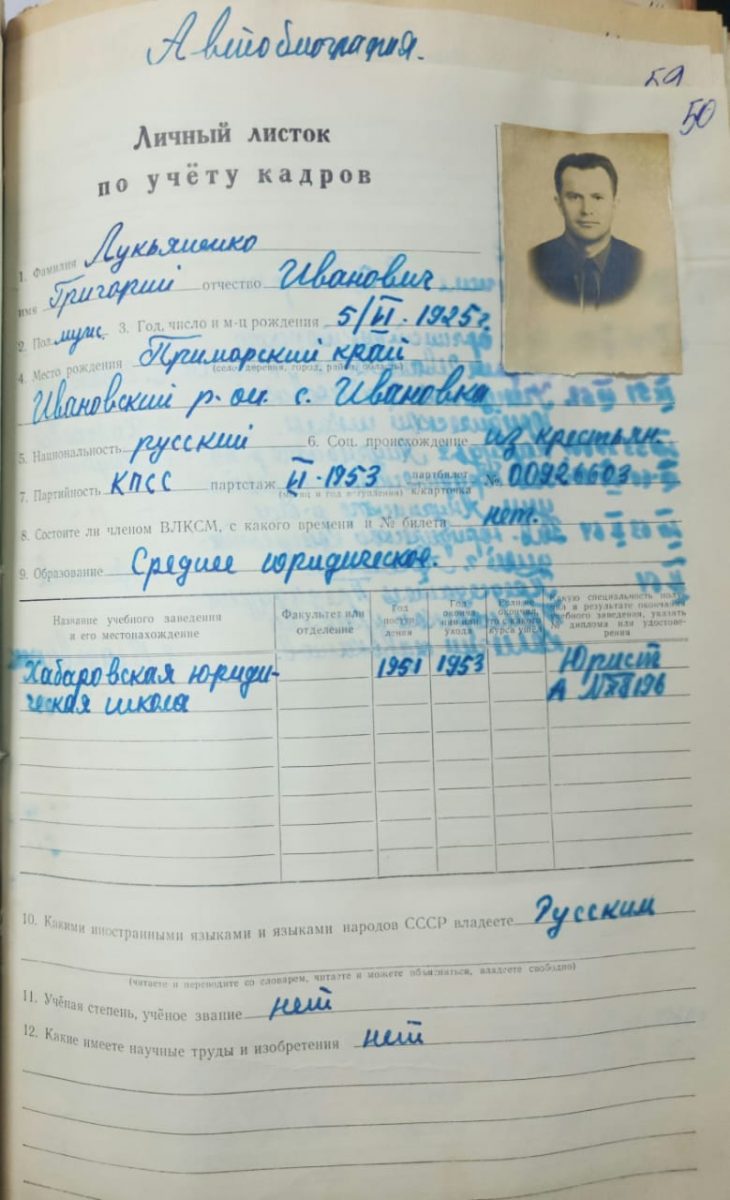 Автобиография.
59
50
Личный листок
по учёту кадров
1. Фамилия Лукьяненко
имя Григорий отчество Иванович
2. Пол муж. 3. Год, число и м-ц рождения 5/VI-1925 г.
4. Место рождения Приморский край
(село, деревня, город, район, область)
Ивановский р-он с. Ивановка
5. Национальность русский 6. Соц. происхождение из крестьян.
7. Партийность КПСС партстаж VI-1953 партбилет № 00926603
(месяц и год вступления) к/карточка
8. Состоите ли членом ВЛКСМ, с какого времени и № билета нет.
9. Образование Среднее юридическое.
Название учебного заведения и его местонахождение
Факультет или отделение
Год поступления
Год окончания или ухода
Какую специальность получил в результате окончания учебного заведения, указать № диплома или удостоверения
Хабаровская юриди- 1951 1953 Юрист
ческая школа А №
10. Какими иностранными языками и языками народов СССР владеете Русским
(читаете и переводите со словарем, читаете и можете объясняться, владеете свободно)
11. Учёная степень, учёное звание нет
12. Какие имеете научные труды и изобретения нет